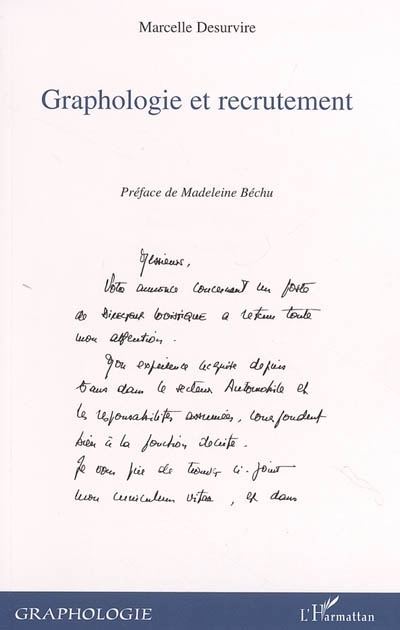 Marcelle Desurvire
Graphologie et recrutement
Préface de Madeleine Béchu
Messieurs,
Votre annonce concernant un poste
de DIRECTEUR LOGISTIQUE a retenu toute
mon attention.
Mon expérience acquise depuis
5 ans dans le secteur Automobile et
les responsabilités assumées, correspondent
bien à la fonction décrite.
Je vous prie de trouver ci-joint
mon curriculum vitae, et dans
GRAPHOLOGIE
L'Harmattan